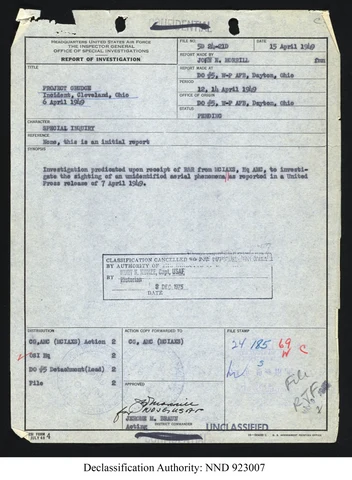 HEADQUARTERS UNITED STATES AIR FORCE
THE INSPECTOR GENERAL
OFFICE OF SPECIAL INVESTIGATIONS
REPORT OF INVESTIGATION
FILE NO. 5D 24-21D DATE 15 April 1949
REPORT MADE BY
JOHN E. MORRILL
TITLE
PROJECT GRUDGE
Incident, Cleveland, Ohio
6 April 1949
REPORT MADE AT
DO #5, W-P AFB, Dayton, Ohio
PERIOD
12, 14 April 1949
OFFICE OF ORIGIN
DO #5, W-P AFB, Dayton, Ohio
STATUS
PENDING
CHARACTER
SPECIAL INQUIRY
REFERENCE
None, this is an initial report
SYNOPSIS
Investigation predicated upon receipt of from MCIAXS, Hq AMC, to investi-
gate the sighting of an unidentified aerial phenomena as reported in a United
Press release of 7 April 1949.
CLASSIFICATION CANCELLED
BY AUTHORITY OF
BY Capt, USAF
Historian
DEC 1975
DATE
DISTRIBUTION
CG, AMC (MCIAXS) Action 2
OSI Hq 2
DO #5 2
File 2
ACTION COPY FORWARDED TO
CG, AMC (MCIAXS)
FILE STAMP
24 185 69
C
5
File
APPROVED
for
DISTRICT COMMANDER
Acting
UNCLASSIFIED
Declassification Authority: NND 923007